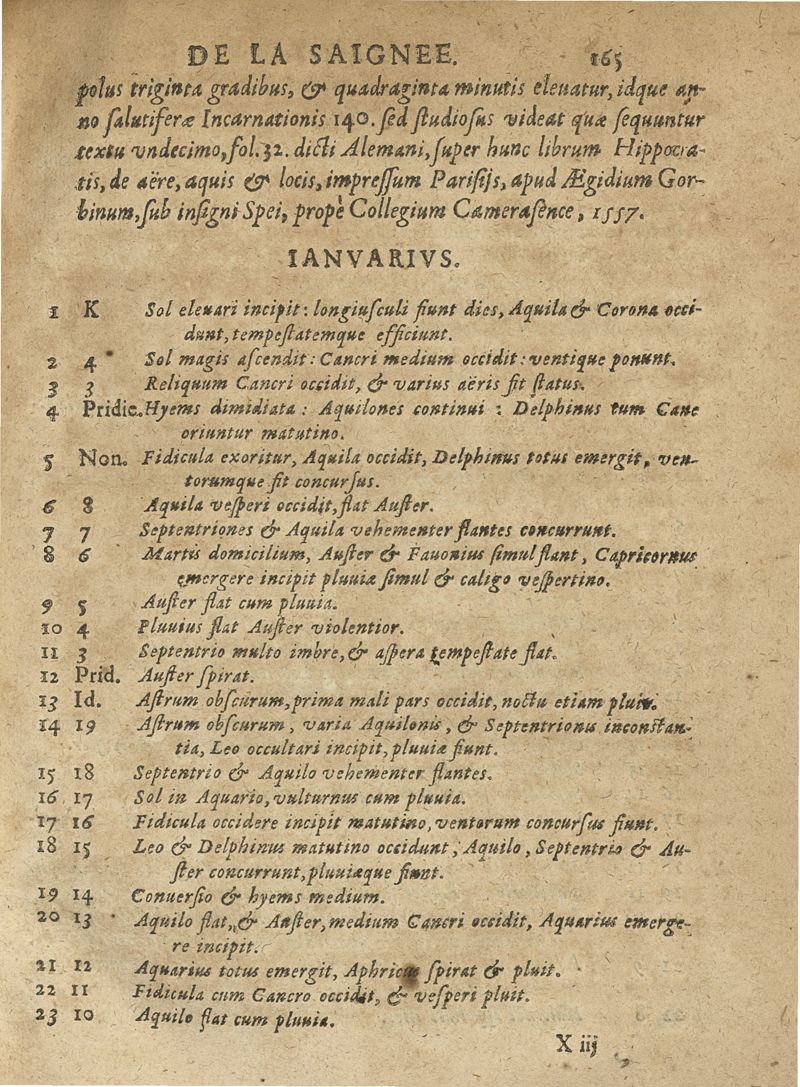 DE LA SAIGNEE. 165
polus triginta gradibus, & quadraginta minutis eleuatur, idque an-
no salutiferæ Incarnationis 140. sed studiosus videat quæ sequuntur
textu vndecimo, fol. 32. dicti Alemani, super hunc librum Hippocra-
tis, de aëre, aquis & locis, impressum Parisijs, apud Ægidium Gor-
binum, sub insigni Spei, propè Collegium Camerasence, 1557.
IANVARIVS.
1 K Sol eleuari incipit: longiusculi fiunt dies, Aquila & Corona occi-
dunt, tempestatemque efficiunt.
2 4 Sol magis ascendit: Cancri medium occidit: ventique ponunt.
3 3 Reliquum Cancri occidit, & varius aëris fit status.
4 Pridie. Hyems dimidiata: Aquilones continui: Delphinus tum Cane
oriuntur matutino.
5 Non. Fidicula exoritur, Aquila occidit, Delphinus totus emergit, ven-
torumque fit concursus.
6 8 Aquila vesperi occidit, flat Auster.
7 7 Septentriones & Aquila vehementer flantes concurrunt.
8 6 Martis domicilium, Auster & Fauonius simul flant, Capricornus
emergere incipit pluuiæ simul & caligo vespertino.
9 5 Auster flat cum pluuia.
10 4 Pluuius flat Auster violentior.
11 3 Septentrio multo imbre, & aspera tempestate flat.
12 Prid. Auster spirat.
13 Id. Astrum obscurum, prima mali pars occidit, noctu etiam pluit.
14 19 Astrum obscurum, varia Aquilonis, & Septentrionis inconstan-
tia, Leo occultari incipit, pluuiæ fiunt.
15 18 Septentrio & Aquilo vehementer flantes.
16 17 Sol in Aquario, vulturnus cum pluuia.
17 16 Fidicula occidere incipit matutino, ventorum concursus fiunt.
18 15 Leo & Delphinus matutino occidunt, Aquilo, Septentrio & Au-
ster concurrunt, pluuiæque fiunt.
19 14 Conuersio & hyems medium.
20 13 Aquilo flat, & Auster, medium Cancri occidit, Aquarius emerge-
re incipit.
21 12 Aquarius totus emergit, Aphricus spirat & pluit.
22 11 Fidicula cum Cancro occidit, & vesperi pluit.
23 10 Aquilo flat cum pluuia.
X iij